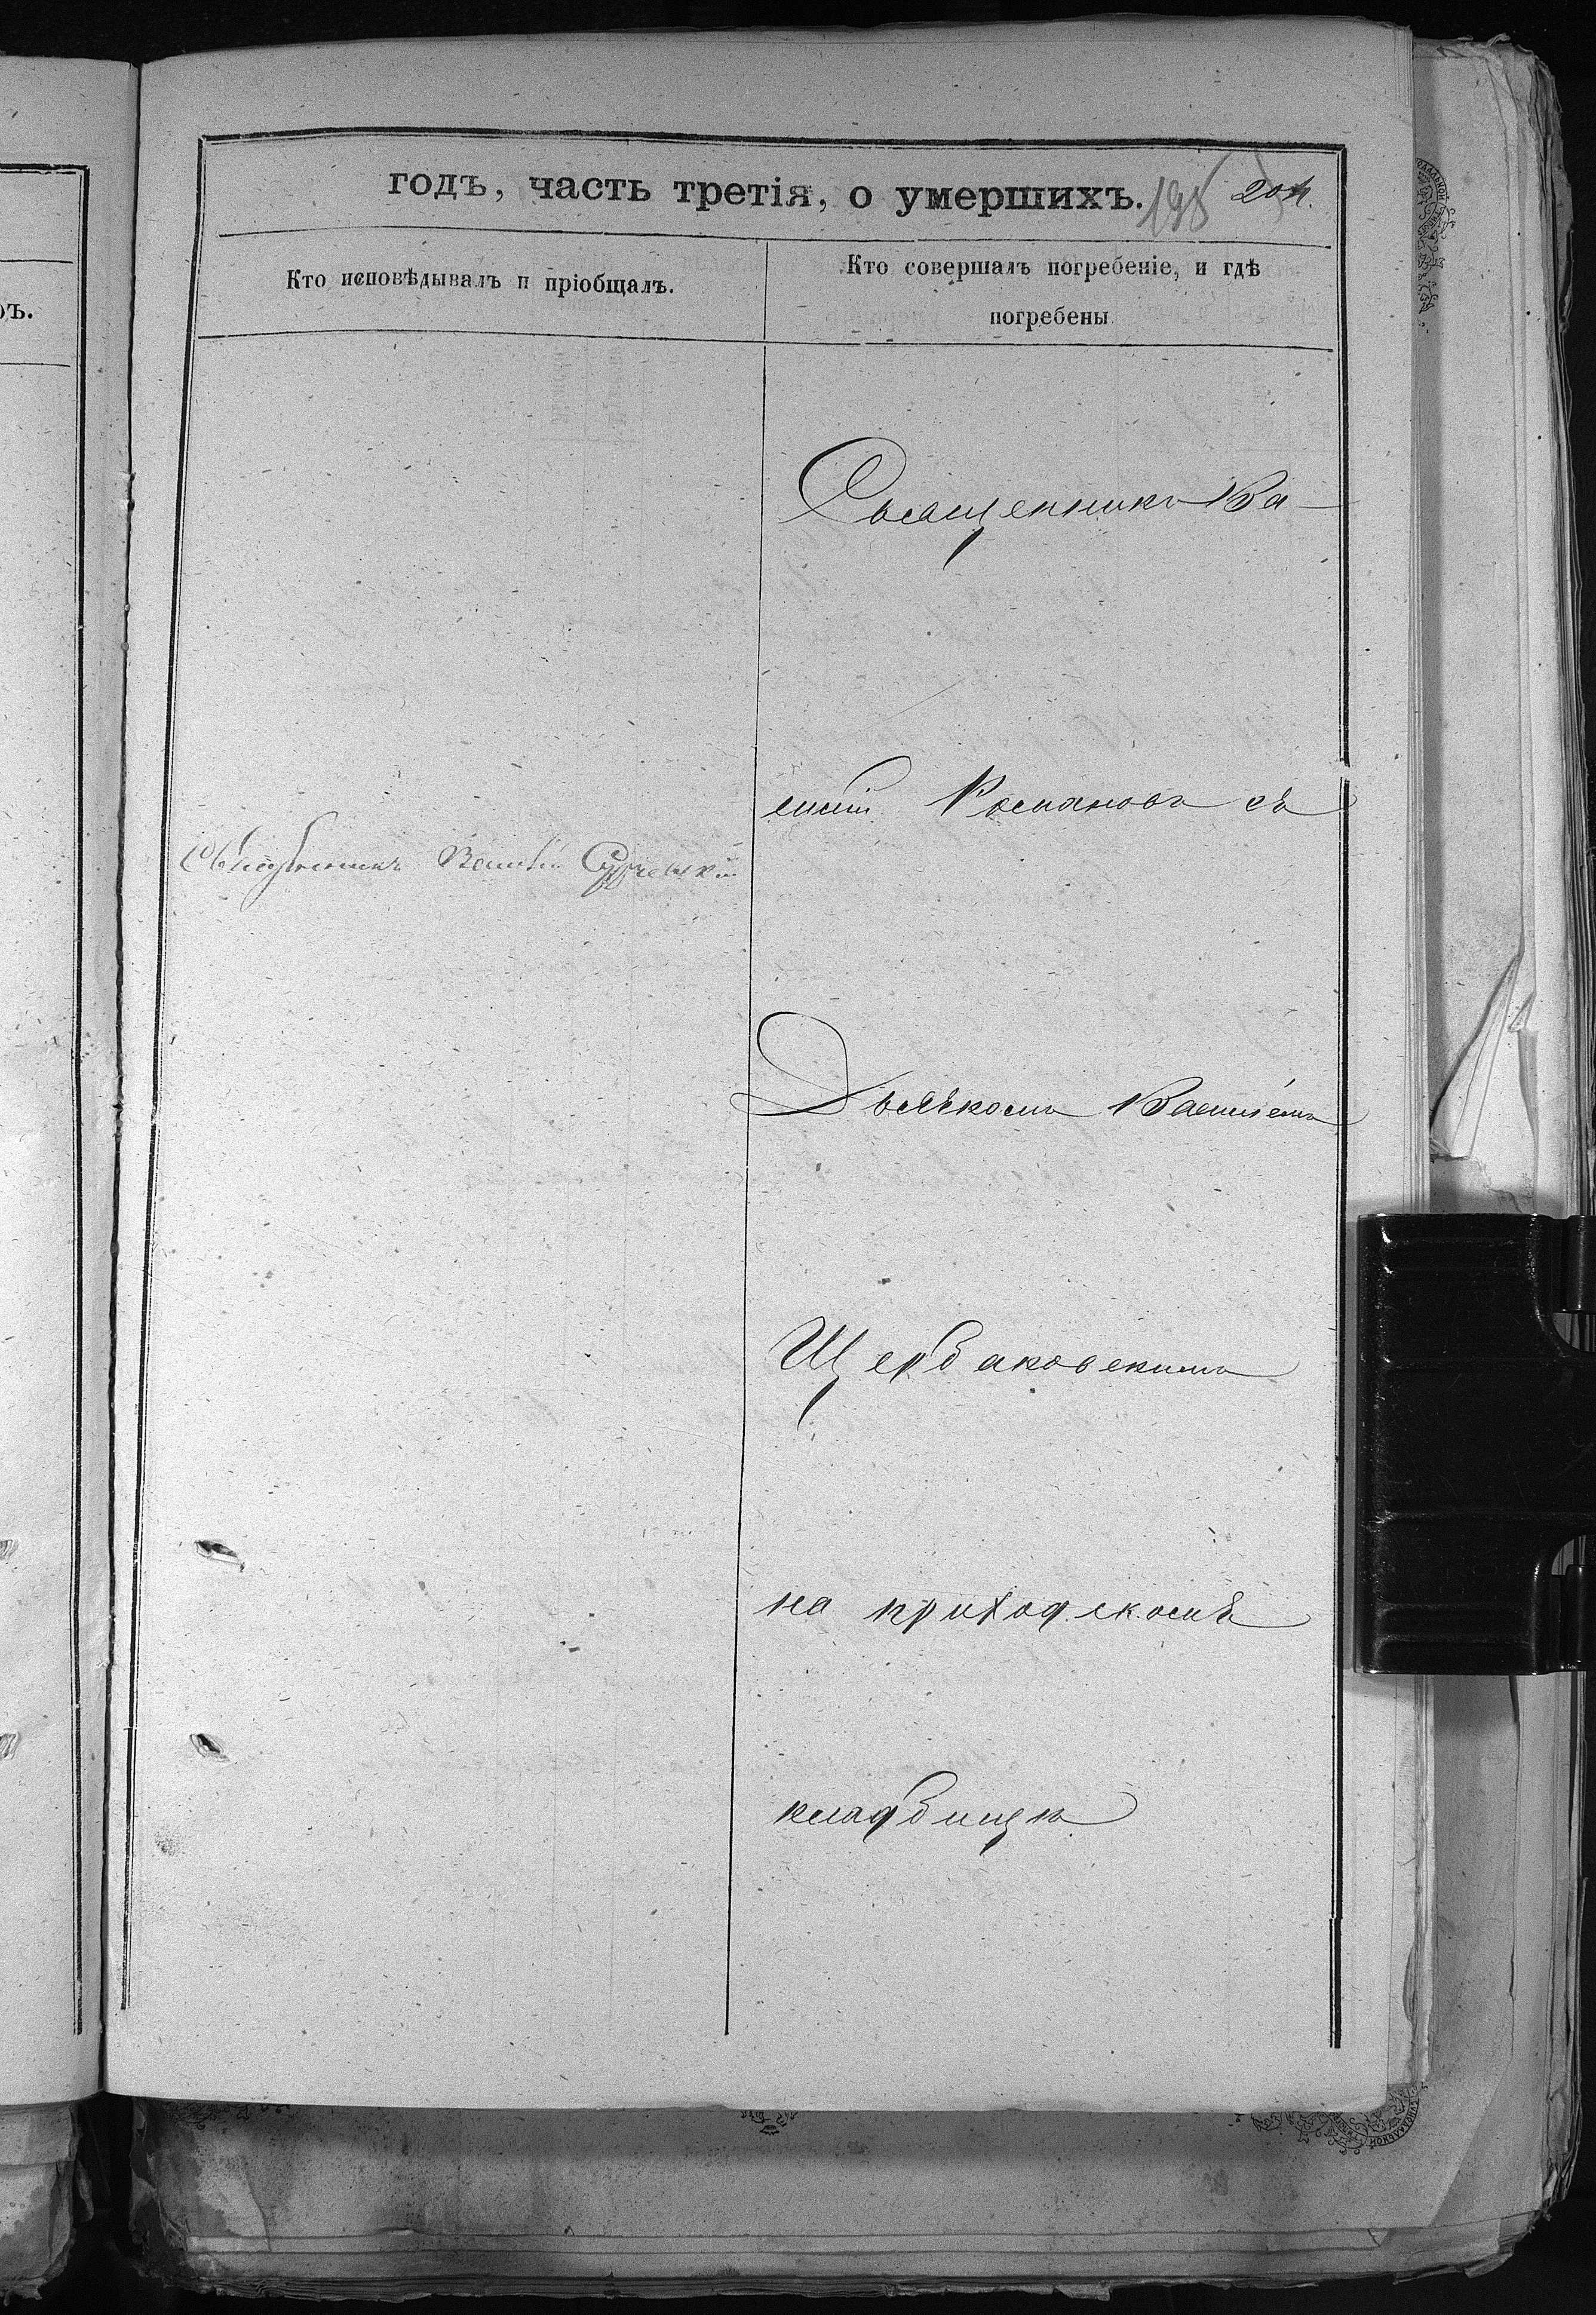 годъ, часть третія, о умершихъ. 198 204.
Кто исповѣдывалъ и пріобщалъ.
Кто совершалъ погребеніе, и гдѣ
погребены
Священникъ Ва-
силій Романовъ съ
Священникъ Василій
Дьячкомъ Василіемъ
Щербаковскимъ
на приходскомъ
кладбищѣ
ръ.